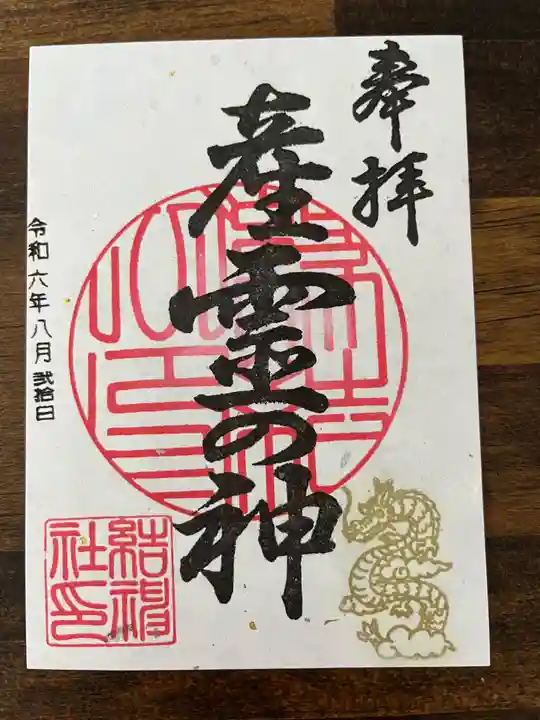 奉拝
産霊の神
令和六年八月弐拾日
結神
社印